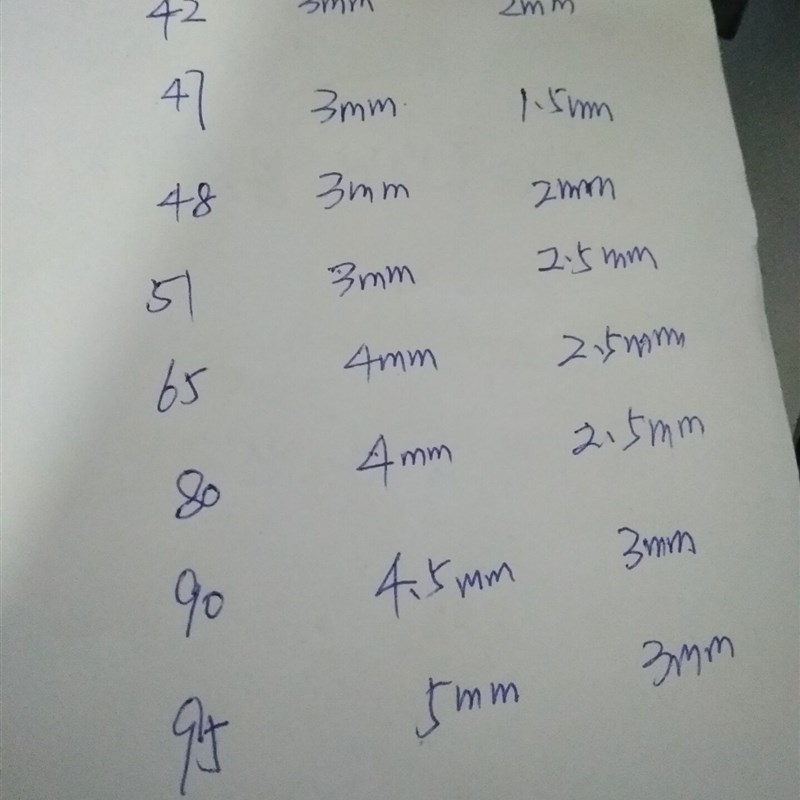 42 3mm 2mm
47 3mm 1.5mm
48 3mm 2mm
51 3mm 2.5mm
65 4mm 2.5mm
80 4mm 2.5mm
90 4.5mm 3mm
95 5mm 3mm